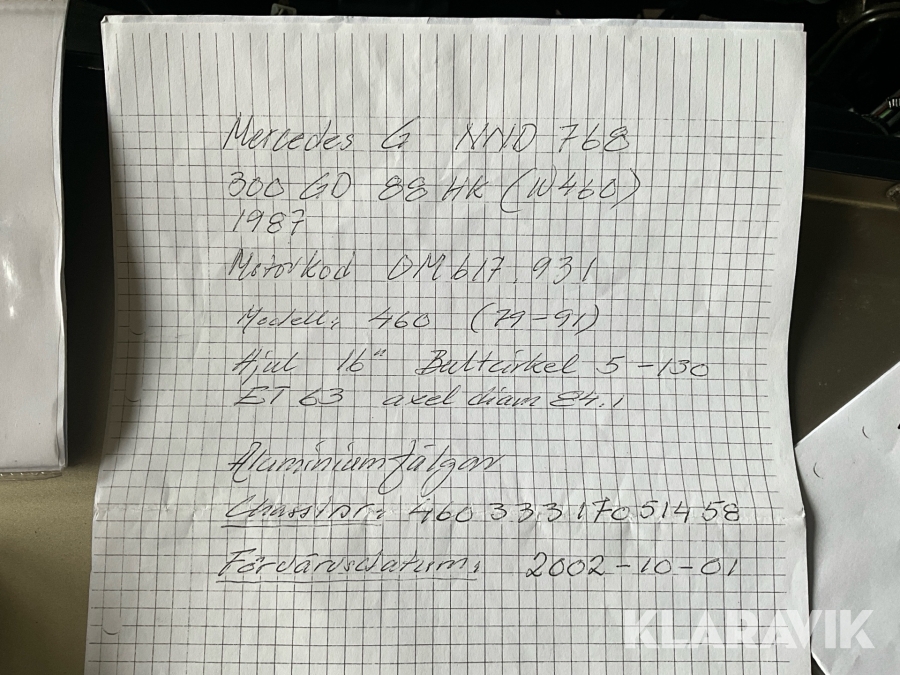 Mercedes G NND 768
300 GD 88 HK (W460)
1987
Motorkod OM617.931
Modell: 460 (79-91)
Hjul 16" Bultcirkel 5-130
ET 63 axel diam 84.1
Aluminiumfälgar
Chassinr: 46033317051458
Förvärvsdatum: 2002-10-01
KLARAVIK